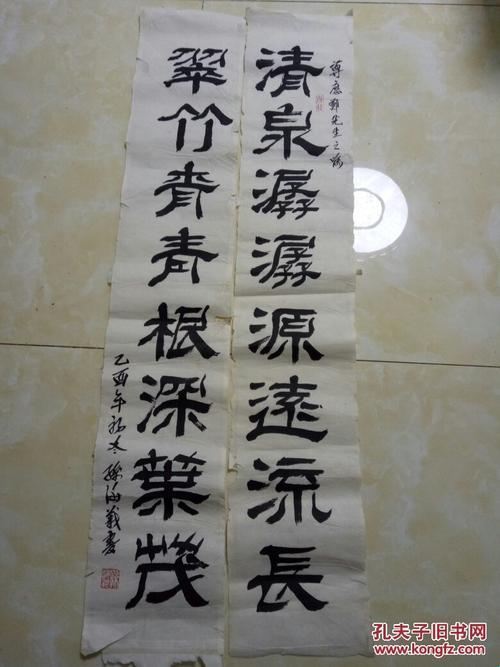 清泉潺潺源远流长
翠竹青青根深葉茂
乙酉年初冬孫海義書
孔夫子旧书网
www.kongfz.com